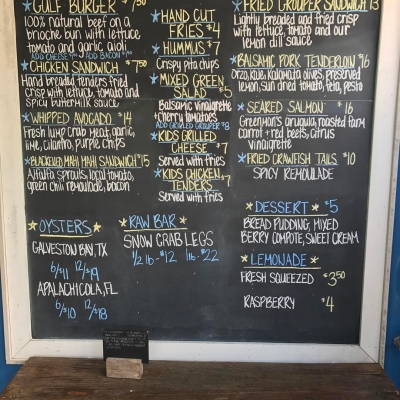 GULF BURGER $7.50
100% natural beef on a
brioche bun with lettuce,
tomato and garlic aioli
ADD CHEESE ADD BACON
CHICKEN SANDWICH $7
Hand breaded tenders fried
crisp with lettuce, tomato and
spicy buttermilk sauce
WHIPPED AVOCADO $14
Fresh lump crab meat, garlic,
lime, cilantro, purple chips
BLACKENED MAHI MAHI SANDWICH $15
Alfalfa sprouts, local tomato,
green chili remoulade, bacon
OYSTERS
GALVESTON BAY, TX
6/$11 12/$19
APALACHICOLA, FL
6/$10 12/$18
HAND CUT
FRIES $4
HUMMUS $7
Crispy pita chips
MIXED GREEN
SALAD $5
Balsamic vinaigrette
+cherry tomatoes
ADD GRILLED GROUPER $8
KIDS GRILLED
CHEESE $7
Served with fries
KIDS CHICKEN
TENDERS $7
Served with fries
RAW BAR
SNOW CRAB LEGS
1/2 lb-$12 1lb-$22
FRIED GROUPER SANDWICH 13
Lightly breaded and fried crisp
with lettuce, tomato and our
lemon dill sauce
BALSAMIC PORK TENDERLOIN $16
Orzo, kale, kalamata olives, preserved
lemon, sun dried tomato, feta, pesto
SEARED SALMON $16
Greenmon's arugula, roasted farm
carrot + red beets, citrus
vinaigrette
FRIED CRAWFISH TAILS $10
SPICY REMOULADE
DESSERT $5
BREAD PUDDING, MIXED
BERRY COMPOTE, SWEET CREAM
LEMONADE
FRESH SQUEEZED $3.50
RASPBERRY $4